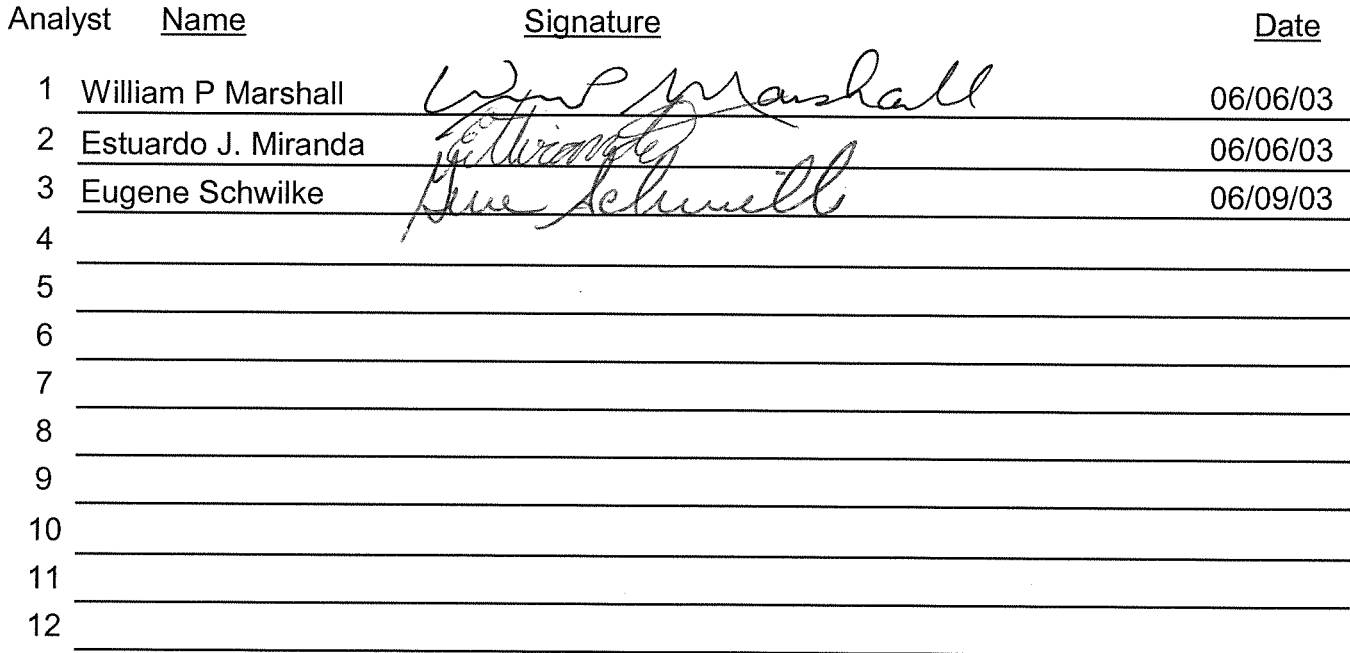 Analyst Name Signature Date
1 William P Marshall Wm P Marshall 06/06/03
2 Estuardo J. Miranda EJMiranda 06/06/03
3 Eugene Schwilke Gene Schwilk 06/09/03
4
5
6
7
8
9
10
11
12